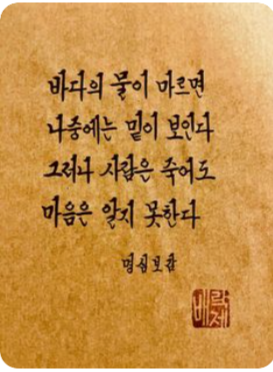 바다의 물이 마르면
나중에는 밑이 보인다
그러나 사람은 죽어도
마음은 알지 못한다
명심보감